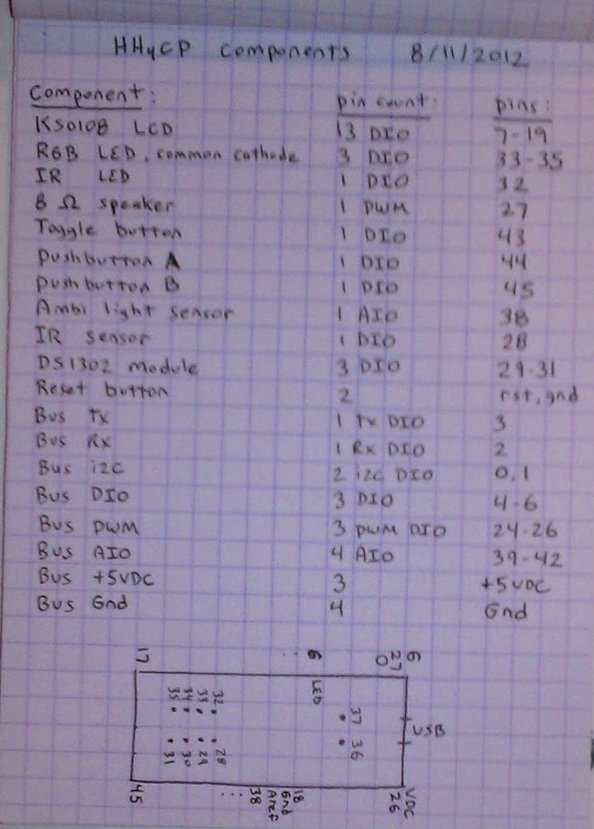 HHyCP components 8/11/2012
Component: pin count: pins:
KS0108 LCD 13 DIO 7-19
RGB LED, common cathode 3 DIO 33-35
IR LED 1 DIO 32
8 Ω speaker 1 PWM 27
Toggle button 1 DIO 43
Pushbutton A 1 DIO 44
Pushbutton B 1 DIO 45
Ambi light sensor 1 AIO 38
IR sensor 1 DIO 28
DS1302 module 3 DIO 29-31
Reset button 2 rst, gnd
Bus Tx 1 Tx DIO 3
Bus Rx 1 Rx DIO 2
Bus i2c 2 i2c DIO 0,1
Bus DIO 3 DIO 4-6
Bus PWM 3 PWM DIO 24-26
Bus AIO 4 AIO 39-42
Bus +5VDC 3 +5VDC
Bus Gnd 4 Gnd
17 : 6 0 27 G
35 34 33 32 LED 37
USB
31 30 29 28 36
45 : 38 Aref Gnd 18 26 VDC